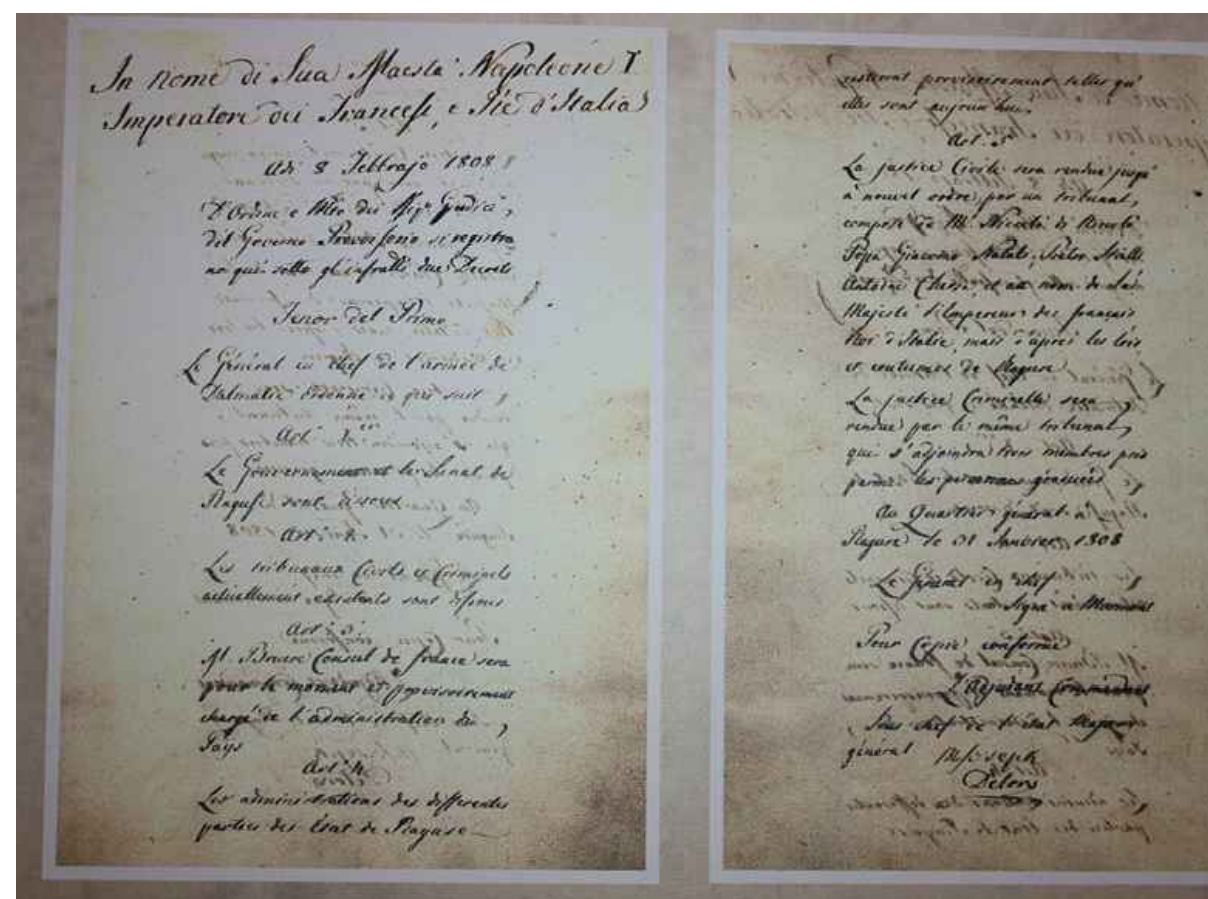 In nome di Sua Maestà Napoleone I
Imperatore dei Francesi, e Rè d'Italia
Adi 8 Febbrajo 1808
D'Ordine e dei Sigri Giudici,
del Governo Provvisorio si registra
no quì sotto gl'infratti due Decreti
Tenor del Primo
Le Général en chef de l'armée de
Dalmatie Ordonne ce qui suit
Art. 1er
Le Gouvernement et le Senat de
Raguse sont dissous
Art. 2
Les tribunaux Civils et Criminels
actuellement existents sont
Art. 3
M. Bruere Consul de france sera
pour le moment et provisoirement
chargé de l'administration du
Pays
Art. 4
Les administrations des differentes
parties des Etat de Raguse
resteront provisoirement telles qu'
elles sont aujourd'hui.
Art. 5
La justice Civile sera rendue jusqu'
à nouvel ordre, par un tribunal,
composé de Mr. Nicolò di Nicolò
Pozza Giacomo Natali, Pietro Stulli
Antoine et au nom de Sa
Majesté l'Empereur des français
Roi d'Italie, mais d'après les lois
et coutumes de Raguse
La justice Criminelle sera
rendue par le même tribunal,
qui s'adjoindra trois membres pris
parmi les personnes
Au Quartier général à
Raguse le 31 Janvier 1808
Le Général en chef
Signé à Marmont
Pour Copie conforme
L'Adjudant Commandant
Sous chef de l'état Major
général
Delort